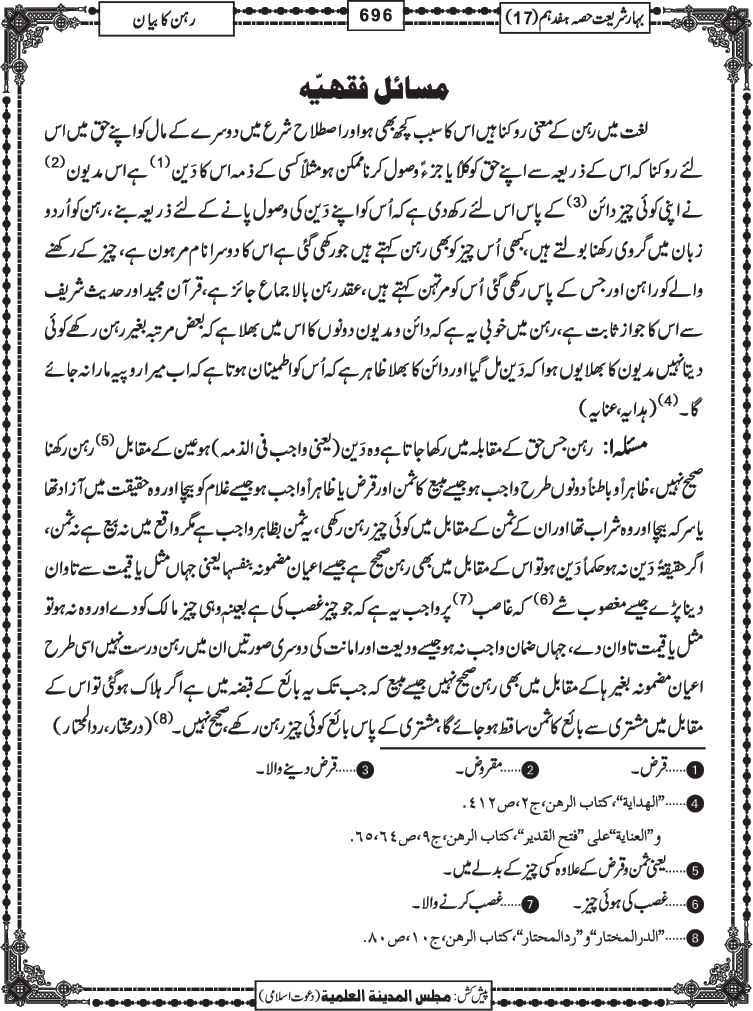 بہار شریعت حصہ ہفدہم (17)
696
رہن کا بیان
مسائل فقہیّه
لغت میں رہن کے معنی روکنا ہیں اس کا سبب کچھ بھی ہو اور اصطلاح شرع میں دوسرے کے مال کو اپنے حق میں اس
لئے روکنا کہ اس کے ذریعہ سے اپنے حق کو کلاً یا جزءً وصول کرنا ممکن ہو مثلاً کسی کے ذمہ اس کا دَین (1) ہے اس مدیون (2)
نے اپنی کوئی چیز دائن (3) کے پاس اس لئے رکھ دی ہے کہ اُس کو اپنے دَین کی وصول پانے کے لئے ذریعہ بنے، رہن کو اُردو
زبان میں گروی رکھنا بولتے ہیں، کبھی اُس چیز کو بھی رہن کہتے ہیں جو رکھی گئی ہے اس کا دوسرا نام مرہون ہے، چیز کے رکھنے
والے کو راہن اور جس کے پاس رکھی گئی اُس کو مرتہن کہتے ہیں، عقد رہن بالاجماع جائز ہے، قرآن مجید اور حدیث شریف
سے اس کا جواز ثابت ہے، رہن میں خوبی یہ ہے کہ دائن و مدیون دونوں کا اس میں بھلا ہے کہ بعض مرتبہ بغیر رہن رکھے کوئی
دیتا نہیں مدیون کا بھلا یوں ہوا کہ دَین مل گیا اور دائن کا بھلا ظاہر ہے کہ اُس کو اطمینان ہوتا ہے کہ اب میرا روپیہ مارا نہ جائے
گا۔ (4) (ہدایہ، عنایہ)
مسئلہ ۱: رہن جس حق کے مقابلہ میں رکھا جاتا ہے وہ دَین (یعنی واجب فی الذمہ) ہو عین کے مقابل (5) رہن رکھنا
صحیح نہیں، ظاہراً و باطناً دونوں طرح واجب ہو جیسے مبیع کا ثمن اور قرض یا ظاہراً واجب ہو جیسے غلام کو بیچا اور وہ حقیقت میں آزاد تھا
یا سرکہ بیچا اور وہ شراب تھا اور ان کے ثمن کے مقابل میں کوئی چیز رہن رکھی، یہ ثمن بظاہر واجب ہے مگر واقع میں نہ بیع ہے نہ ثمن،
اگر حقیقۃً دَین نہ ہو حکماً دَین ہو تو اس کے مقابل میں بھی رہن صحیح ہے جیسے اعیان مضمونہ بنفسہا یعنی جہاں مثل یا قیمت سے تاوان
دینا پڑے جیسے مغصوب شے (6) کہ غاصب (7) پر واجب یہ ہے کہ جو چیز غصب کی ہے بعینہٖ وہی چیز مالک کو دے اور وہ نہ ہو تو
مثل یا قیمت تاوان دے، جہاں ضمان واجب نہ ہو جیسے ودیعت اور امانت کی دوسری صورتیں ان میں رہن درست نہیں اسی طرح
اعیان مضمونہ بغیرہا کے مقابل میں بھی رہن صحیح نہیں جیسے مبیع کہ جب تک یہ بائع کے قبضہ میں ہے اگر ہلاک ہوگئی تو اس کے
مقابل میں مشتری سے بائع کا ثمن ساقط ہو جائے گا، مشتری کے پاس بائع کوئی چیز رہن رکھے، صحیح نہیں۔ (8) (درمختار، ردالمحتار)
1......قرض۔ 2......مقروض۔ 3......قرض دینے والا۔
4......"الھدایة"، کتاب الرھن، ج٢، ص٤١٢.
و"العنایة"علی "فتح القدیر"، کتاب الرھن، ج٩، ص٦٤، ٦٥.
5......یعنی ثمن و قرض کے علاوہ کسی چیز کے بدلے میں۔
6......غصب کی ہوئی چیز۔ 7......غصب کرنے والا۔
8......"الدرالمختار"و"ردالمحتار"، کتاب الرھن، ج١٠، ص٨٠.
پیش کش: مجلس المدينة العلمية (دعوت اسلامی)